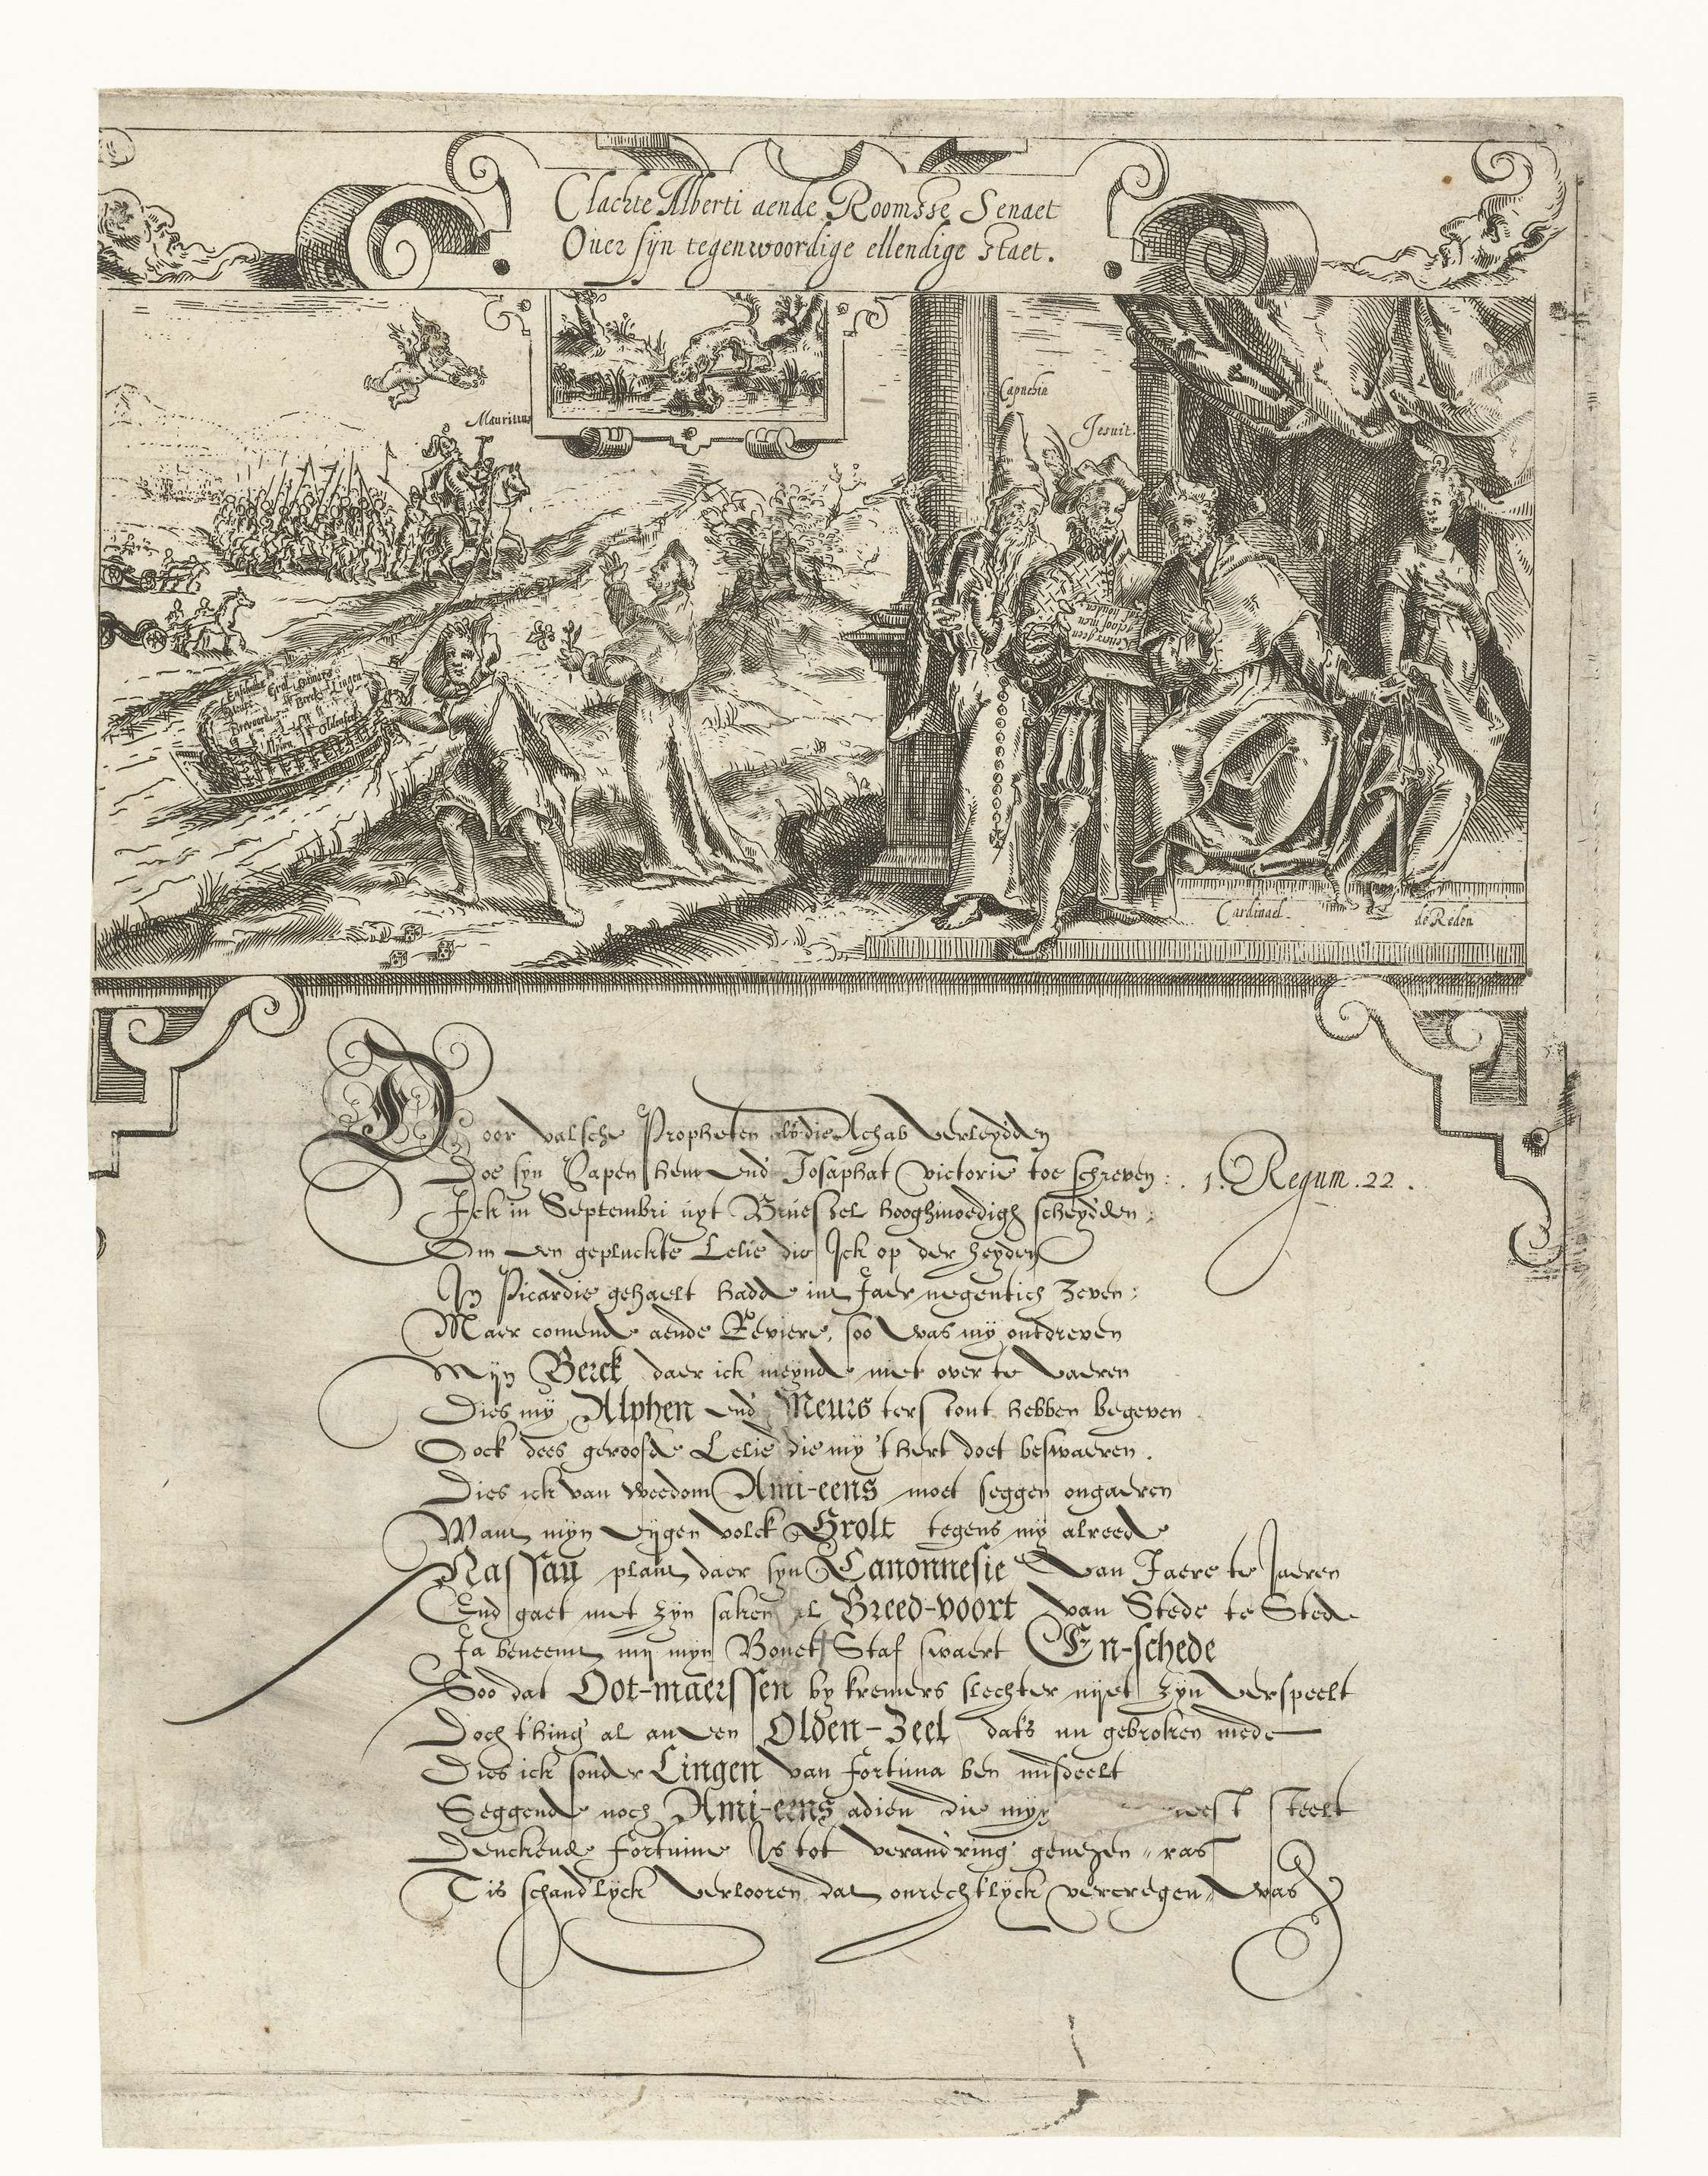 Clachte Alberti aende Roomsse Senaet
Over sÿn tegenwoordige ellendige staet.
Mauritius
Capuchin
Jesuit.
Ketters geen
geloof men
sal houden
Enschede Grol Otmars
Meurs Berck Lingen
Brevoort en
Alpen Oldenseel
Cardinael
de Reden
Door valsche Propheten die Achab verleydden
Doe syn Papen hem end Josaphat victorie toe schreven:
1. Regum. 22.
Ick in Septembri uyt Bruessel hooghmoedigh scheydden:
Om een gepluckte Lelie die Ick op der heyden
In Picardie gehaelt hadde int Jaer negentich Zeven:
Maer comende aende Reviere, soo was mÿ ontdreven
Mijn Berck daer ick meynde met over te vaeren
Dies mÿ Alphen end Meurs terstont hebben begeven
Oock dees geroofde Lelie die mÿ 't hert doet beswaeren.
Dies ick van weedom Ami-eens moet seggen ongaeren
Want mÿn eÿgen volck Grolt tegens mÿ alreede
Nassau plant daer syn Canonnesie van Jaere te Jaeren
End gaet met zÿn saken al Breed-voort van Stede te Stede
Ja beneemt mÿ mÿn Bonet Staf swaert En-schede
Soo dat Oot-maerssen by kremers slechter nijet zÿn verspeelt
Doch t'hing al an een Olden-Zeel dats nu gebroken mede
Dies ick sonder Lingen van fortuna ben misdeelt
Seggende noch Ami-eens adieu die mÿ steelt
Denckende fortuine Is tot verand'ring genezen ras
T is schandlÿck verlooren dat onrechtlÿck vercregen was